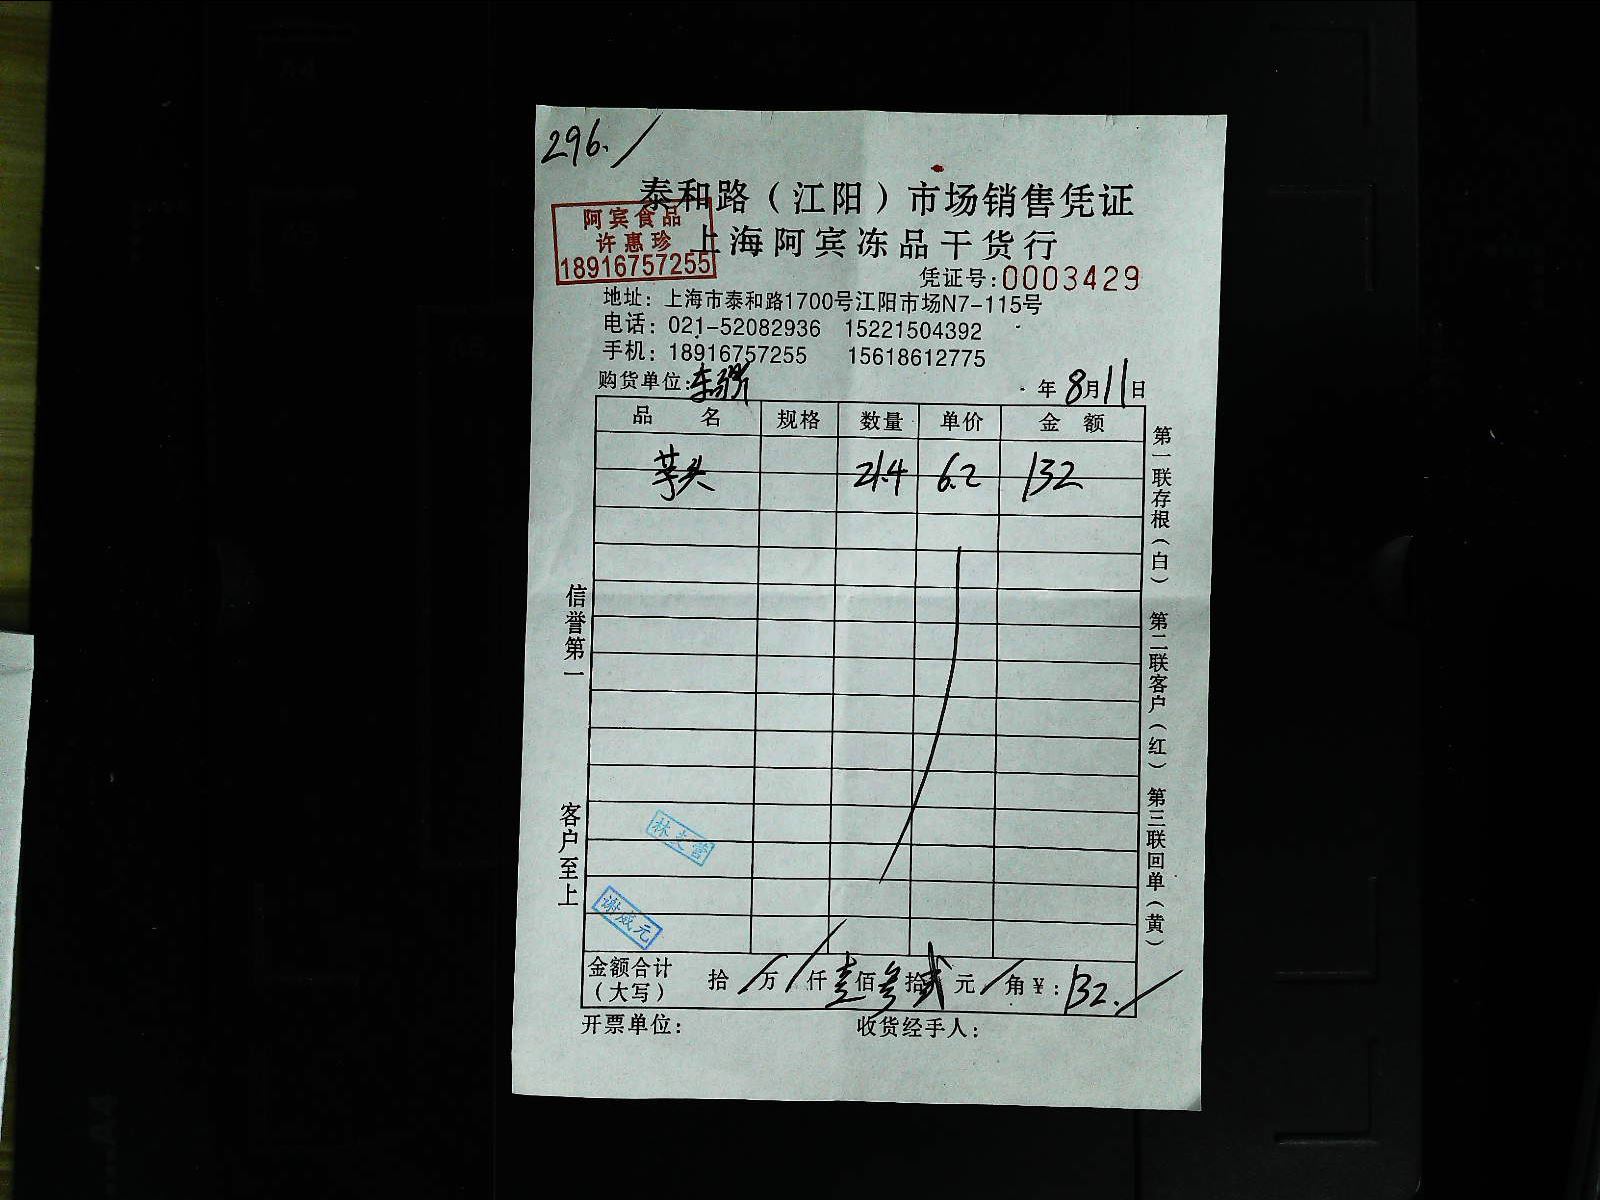 296.
泰和路（江阳）市场销售凭证
阿宾食品
许惠珍
18916757255
上海阿宾冻品干货行
凭证号:0003429
地址：上海市泰和路1700号江阳市场N7-115号
电话：021-52082936 15221504392
手机：18916757255 15618612775
购货单位:
年8月11日
品 名 规格 数量 单价 金 额
芋头 21.4 6.2 132
信誉第一
客户至上
第一联存根（白） 第二联客户（红） 第三联回单（黄）
谢威元
金额合计（大写） 拾/万/仟壹佰叁拾贰元/角¥:132.
开票单位: 收货经手人: